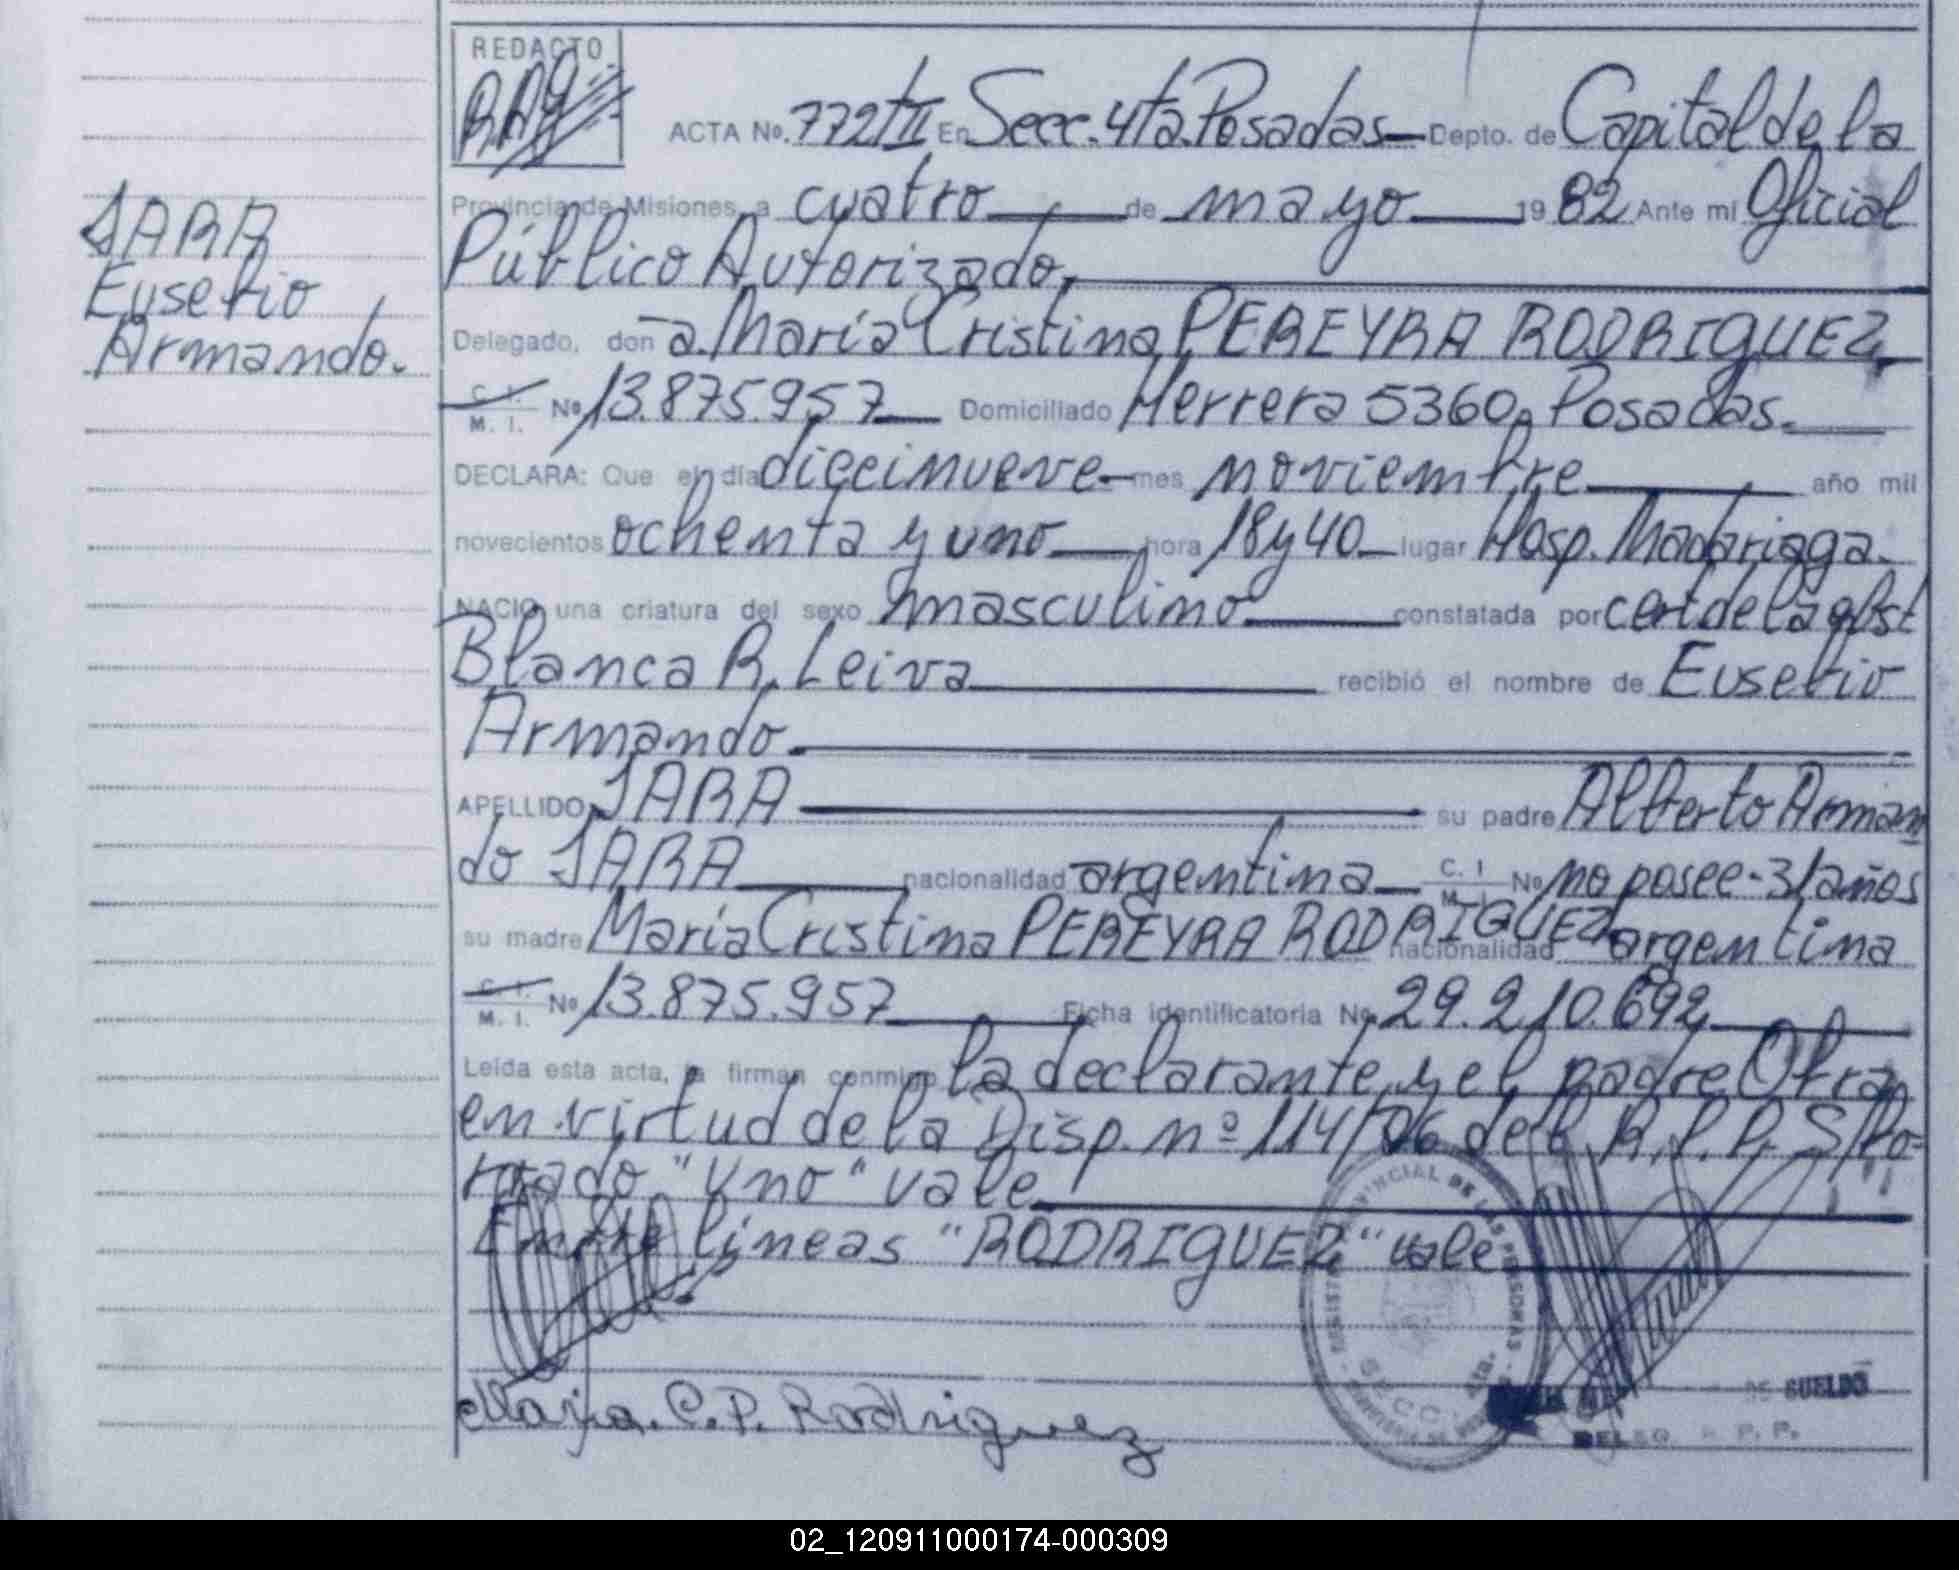 REDACTO
ACTA No. 772 t II En Secc. 4ta. Posadas Depto. de Capital de la
Provincia de Misiones, a cuatro de mayo 19 82 Ante mi Oficial
Público Autorizado,
SARA
Eusebio
Armando.
Delegado, don a. María Cristina PEREYRA RODRIGUEZ
C. I. M. I. No 13.875.957 Domiciliado Herrera 5360, Posadas.
DECLARA: Que el día diecinueve mes noviembre año mil
novecientos ochenta y uno hora 18 y 40 lugar Hosp. Madariaga.
NACIO una criatura del sexo masculino constatada por cert de la obst
Blanca R. Leiva recibió el nombre de Eusebio
Armando.
APELLIDO SARA su padre Alberto Arman
do SARA nacionalidad argentina C. I. M. I. No no posee - 31 años
su madre María Cristina PEREYRA RODRIGUEZ nacionalidad argentina
C. I. M. I. No 13.875.957 Ficha identificatoria No. 29.210.692
Leída esta acta, la firman conmigo la declarante y el padre Obran
en virtud de la Disp. nº 114/06 del R. P. P. S/bo-
rrado "uno" vale
Entre líneas "RODRIGUEZ" vale
Maria. C. P. Rodriguez
DE SUELDO
R. P. P.
02_120911000174-000309